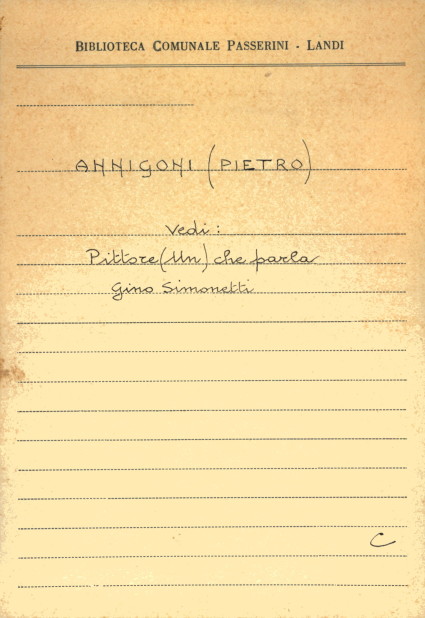 BIBLIOTECA COMUNALE PASSERINI - LANDI
ANNIGONI (PIETRO)
Vedi:
Pittore (Un) che parla
Gino Simonetti
C